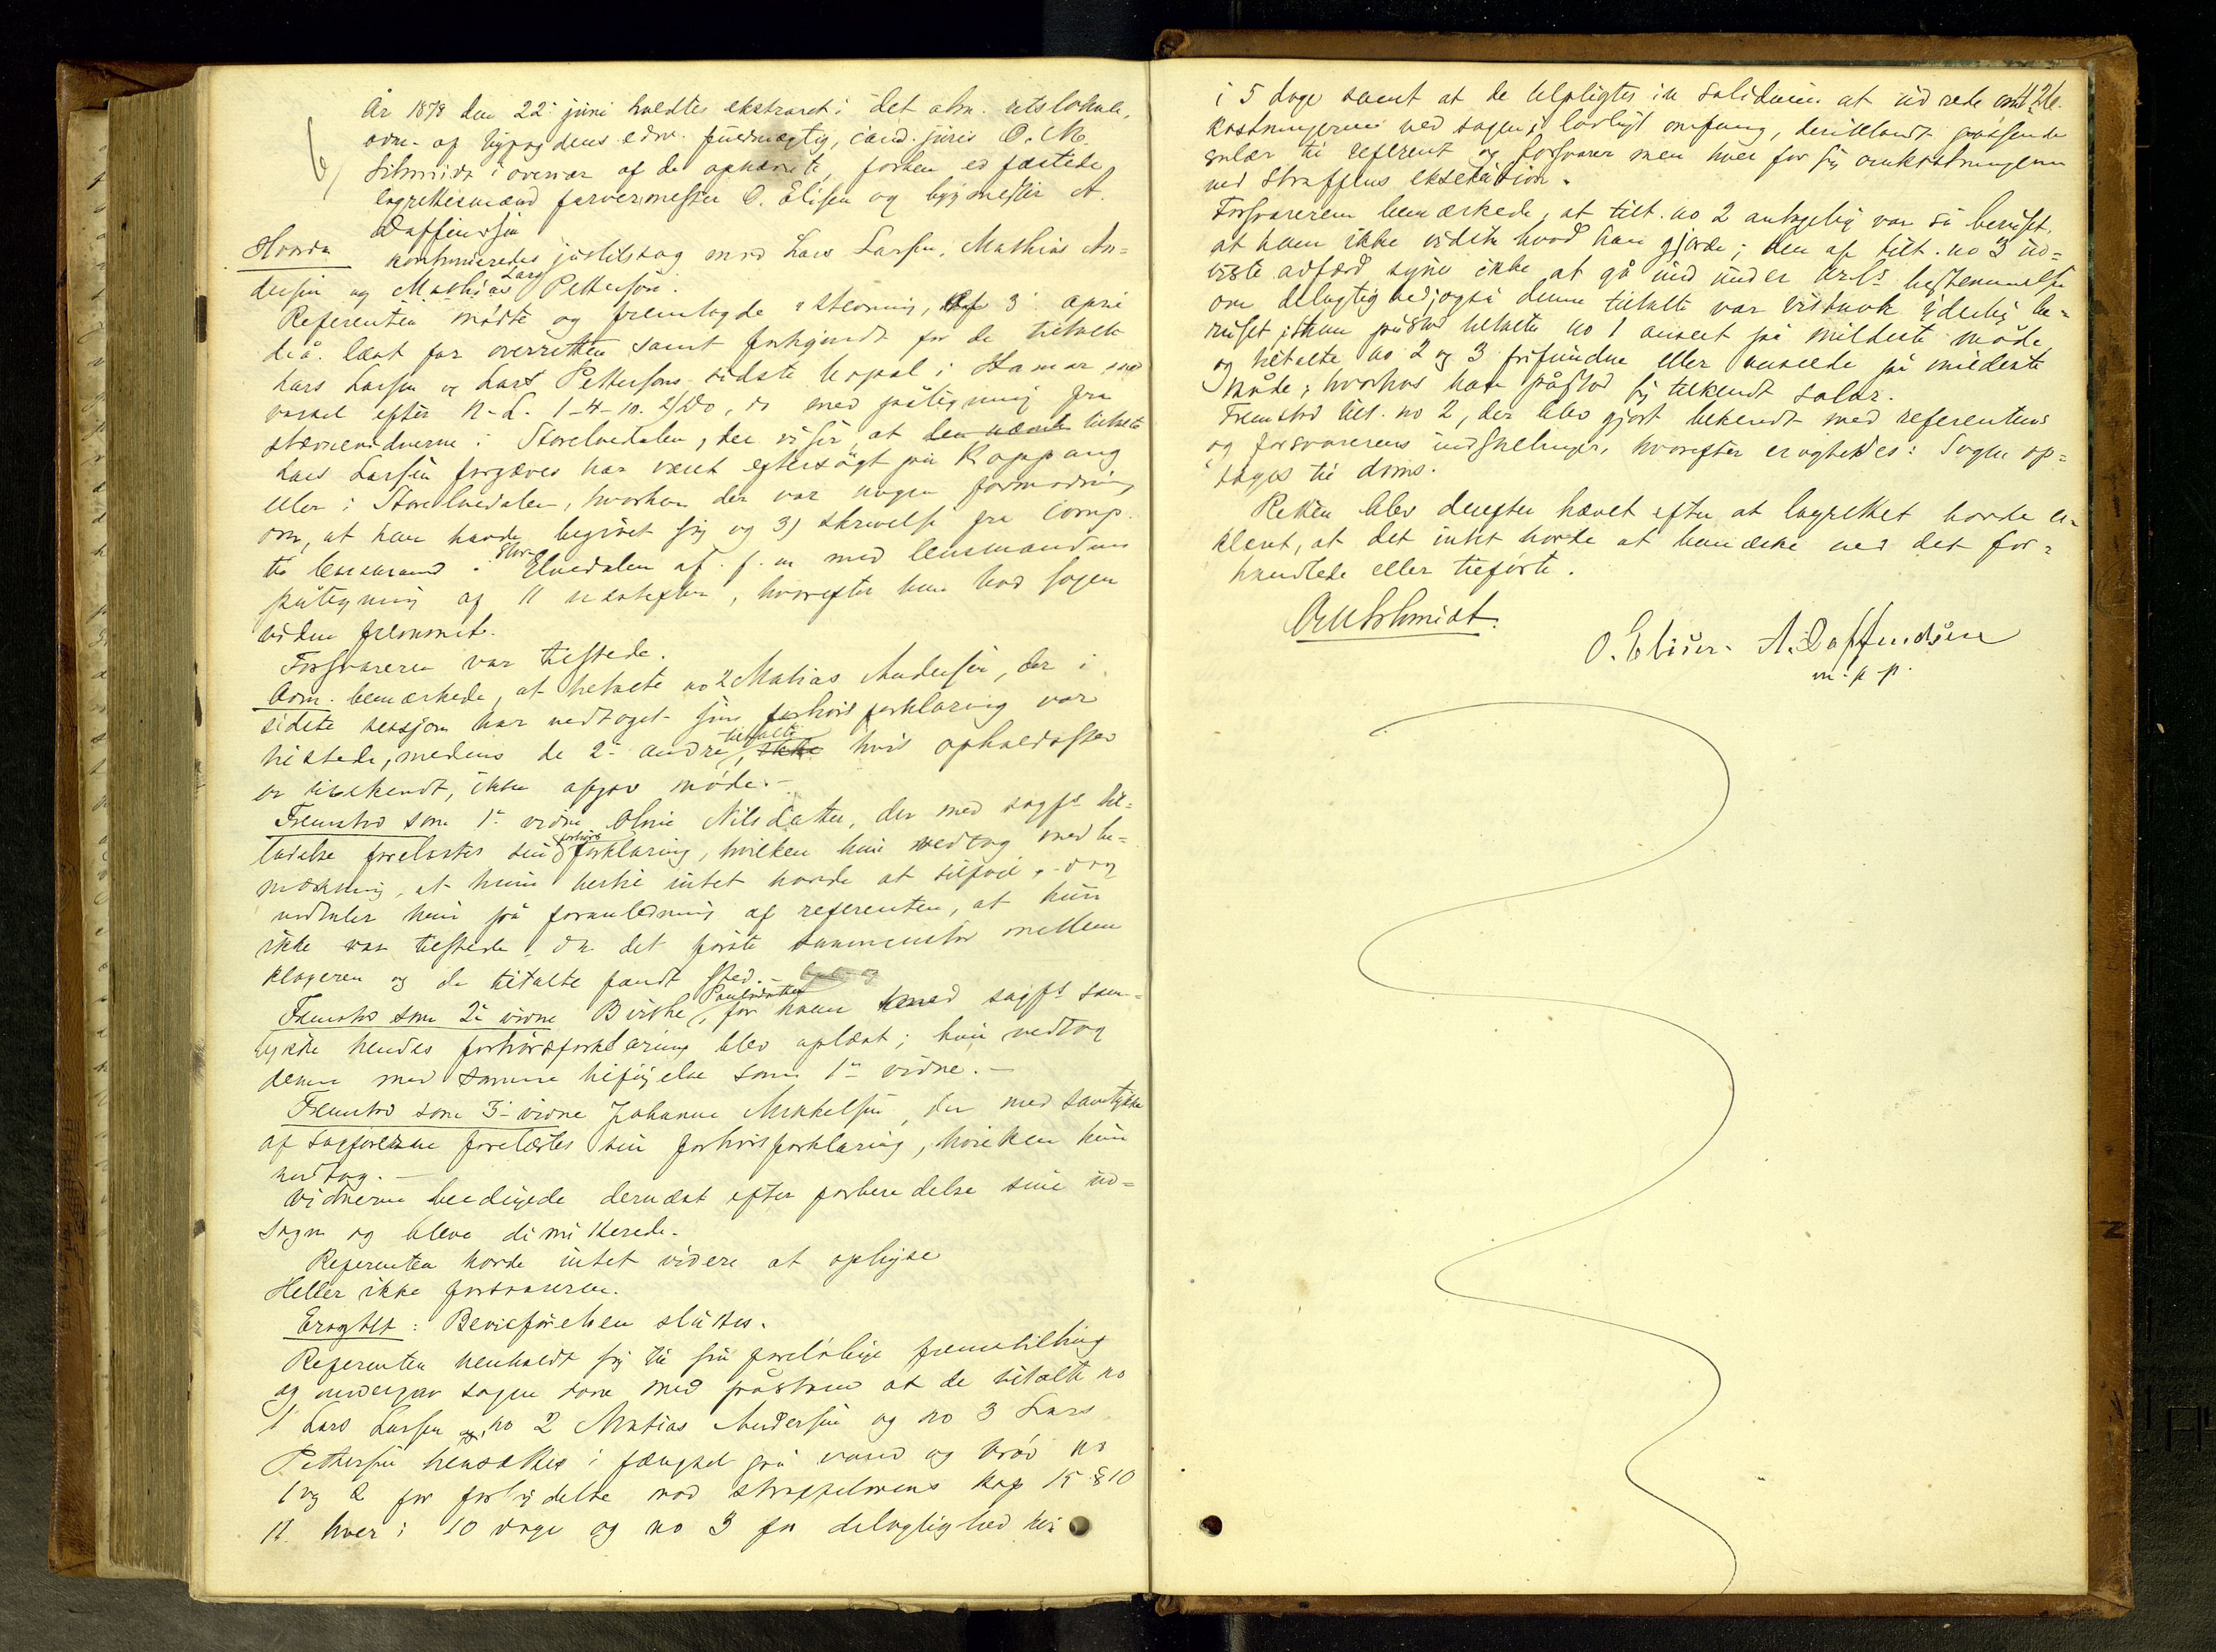 År 1878 den 22de juni holdtes ekstraret i det alm. retslokale,
adm. af byfogdens edsv. fuldmægtig, cand. juris O. M.
Schmidt i overvær af de opnævnte, forhen edfæstede
lagrettesmænd farvermester O. Elisen og bygmester A.
Daffindsen
Hvorda kontinueredes justitssag mod Lars Larsen, Mathias An=
dersen og Mathias Lars Pettersen.
Referenten mødte og fremlagde stevning af 3 april
d. å. læst for overretten samt forkyndt for de tiltalte
Lars Larsen og Lars Pettersens sidste bopæl i Hamar med
varsel efter N. L. 1-4-10. 2) Do, do med påtegning fra
stævnevidnerne i Storelvedalen, der viser, at den nævnte tiltalte
Lars Larsen forgæves har været eftersøgt på Koppang
eller i Storelvedalen, hvorhen der var nogen formodning
om, at han havde begivet sig og 3) skrivelse fra comp.
til lensmand i Stor-Elvedalen af f. m. med lensmandens
påtegning og 11 vedhefter, hvorefter han bad sagen
viden fremmet.
Forsvareren var tilstede.
Adm. bemærkede, at tiltalte no 2 Matias Andersen, der i
sidste session har vedtaget sin forhørsforklaring var
tilstede, medens de 2de andre tiltalte, ikke hvis opholdssted
er ubekendt, ikke afgav møde.-
Fremstod som 1ste vidne Oline Nilsdatter, der med sagfs til=
ladelse forelæstes sin forhørsforklaring, hvilken hun vedtog med be=
mærkning, at hun hertil intet havde at tilføie, dog
udtaler hun på foranledning af referenten, at hun
ikke var tilstede, da det første sammenstød mellem
klageren og de tiltalte fandt sted.-
Fremstod som 2det vidne Birthe Paulsdatter, for hvem med sagfs sam=
tykke hendes forhørsforklaring blev oplæst; hun vedtog
denne med samme tilføielse som 1ste vidne.-
Fremstod som 3die vidne Johanne Mikkelsen, der med samtykke
af sagførerne forelæstes sin forhørsforklaring, hvilken hun
vedtog.-
Vidnerne beedigede dernæst efter forberedelse sine ud=
sagn og bleve dimitterede.
Referenten havde intet videre at oplyse
Heller ikke forsvareren.
Eragtet: Bevisførelsen sluttes.
Referenten henholdt sig til sin foreløbige fremstilling
og undergav sagen dom med påstand at de tiltalte no
1 Lars Larsen og no 2 Matias Andersen og no 3 Lars
Pettersen hensættes i fængsel på vand og brød no
1 og 2 for forbrydelse mod straffelovens kap 15 § 10
hver i 10 dage og no 3 for delagtighed heri
426.
i 5 dage samt at de tilpligtes in solidum at udrede om=
kostningerne ved sagens lovligt omfang, deriblandt passende
salær til referent og forsvarer men hver for sig omkostningerne
ved straffens eksekution.
Forsvareren bemærkede, at tilt. no 2 antagelig var så beruset,
at han ikke vidste hvad han gjorde; den af tilt. no 3 ud=
viste adfærd synes ikke at gå ind under krls bestemmelse
om delagtighed; også denne tiltalte var vistnok yderlig be=
ruset; han påstod tiltalte no 1 anseet på mildeste måde
og tiltalte no 2 og 3 frifundne eller ansede på mildeste
måde; hvorhos han påstod sig tilkendt salær.
Fremstod tilt. no 2, der blev gjort bekendt med referentens
og forsvarerens indstillinger, hvorefter eragtedes: Sagen op=
tages til doms.
Retten blev derefter hævet efter at lagrettet havde er=
klært, at det intet havde at bemærke ved det for=
handlede eller tilførte.
O. M. Schmidt.
O. Elisen. A. Daffindsen
m. p. p.